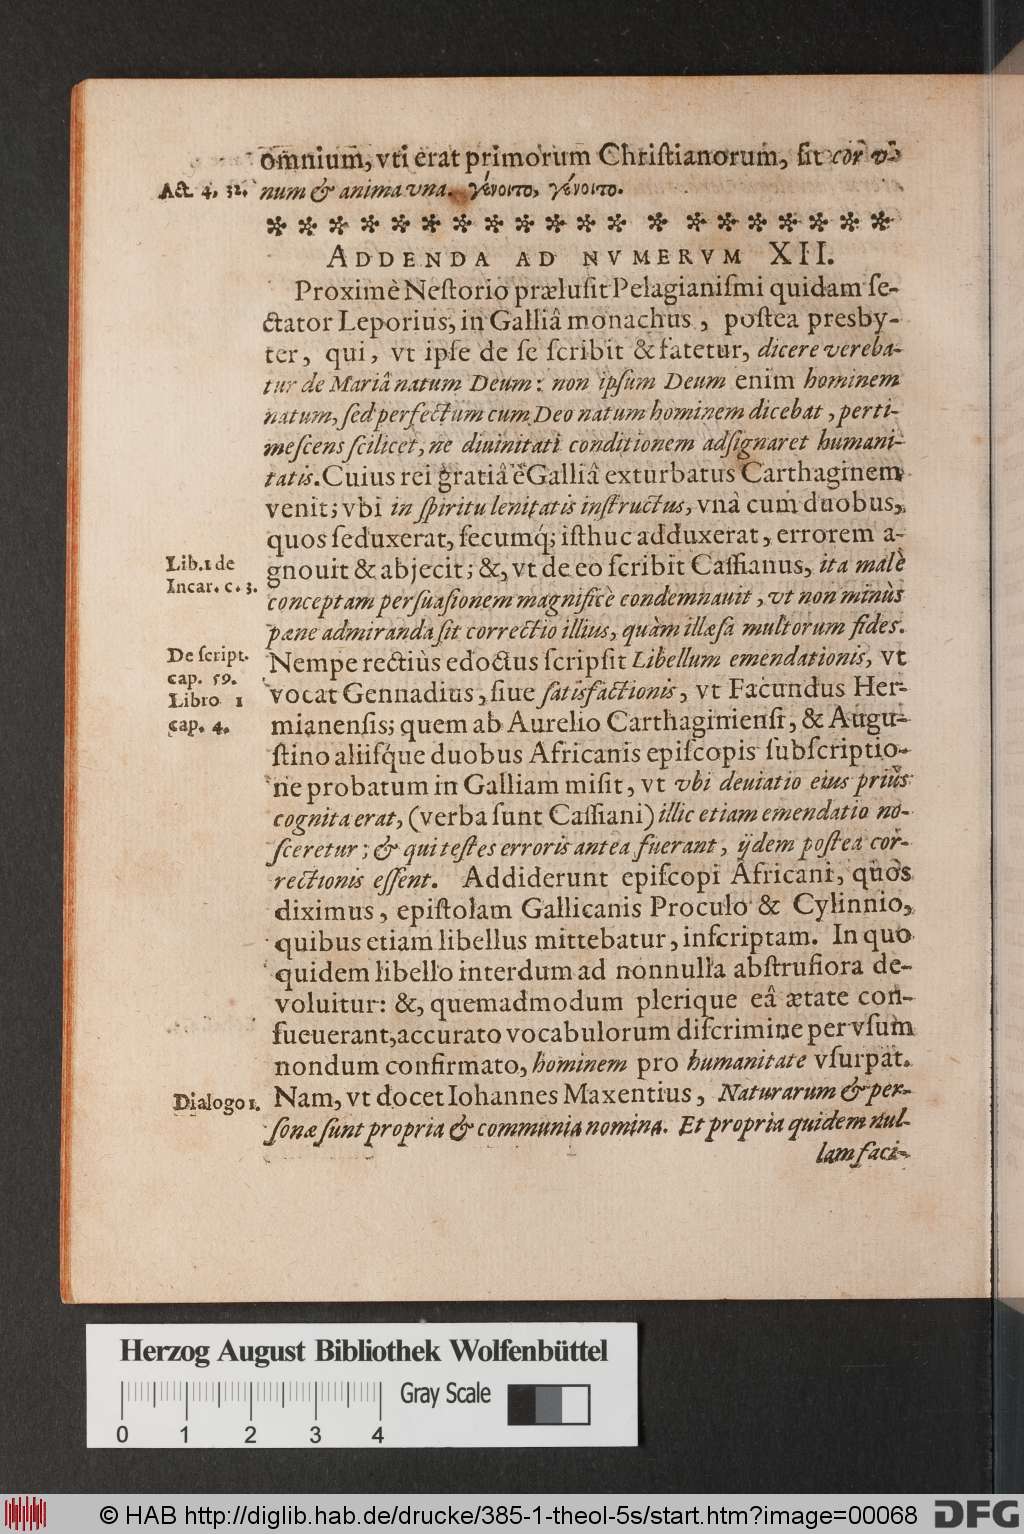 omnium, vti erat primorum Christianorum, sit cor v-
Act. 4. 32. num & anima vna. γένοιτο, γένοιτο.
ADDENDA AD NVMERVM XII.
Proximè Nestorio prælusit Pelagianismi quidam se-
ctator Leporius, in Galliâ monachus, postea presby-
ter, qui, vt ipse de se scribit & fatetur, dicere vereba-
tur de Mariâ natum Deum: non ipsum Deum enim hominem
natum, sed perfectum cum Deo natum hominem dicebat, perti-
mescens scilicet, ne diuinitati conditionem adsignaret humani-
tatis. Cuius rei gratiâ è Galliâ exturbatus Carthaginem
venit; vbi in spiritu lenitatis instructus, vnà cum duobus,
quos seduxerat, secumq́; isthuc adduxerat, errorem a-
Lib. 1 de
Incar. c. 3.
gnouit & abjecit; &, vt de eo scribit Cassianus, ita malè
conceptam persuasionem magnificè condemnauit, vt non minùs
pæne admiranda sit correctio illius, quàm illæsa multorum fides.
De script.
cap. 59.
Libro 1
cap. 4.
Nempe rectiùs edoctus scripsit Libellum emendationis, vt
vocat Gennadius, siue satisfactionis, vt Facundus Her-
mianensis; quem ab Aurelio Carthaginiensi, & Augu-
stino aliisq́ue duobus Africanis episcopis subscriptio-
ne probatum in Galliam misit, vt vbi deuiatio eius priùs
cognita erat, (verba sunt Cassiani) illic etiam emendatio no-
sceretur; & qui testes erroris antea fuerant, ijdem postea cor-
rectionis essent. Addiderunt episcopi Africani, quos
diximus, epistolam Gallicanis Proculo & Cylinnio,
quibus etiam libellus mittebatur, inscriptam. In quo
quidem libello interdum ad nonnulla abstrusiora de-
voluitur: &, quemadmodum plerique eâ ætate con-
sueuerant, accurato vocabulorum discrimine per vsum
nondum confirmato, hominem pro humanitate vsurpat.
Dialogo 1. Nam, vt docet Iohannes Maxentius, Naturarum & per-
sonæ sunt propria & communia nomina. Et propria quidem nul-
lam faci-
Herzog August Bibliothek Wolfenbüttel
Gray Scale
0 1 2 3 4
© HAB http://diglib.hab.de/drucke/385-1-theol-5s/start.htm?image=00068 DFG